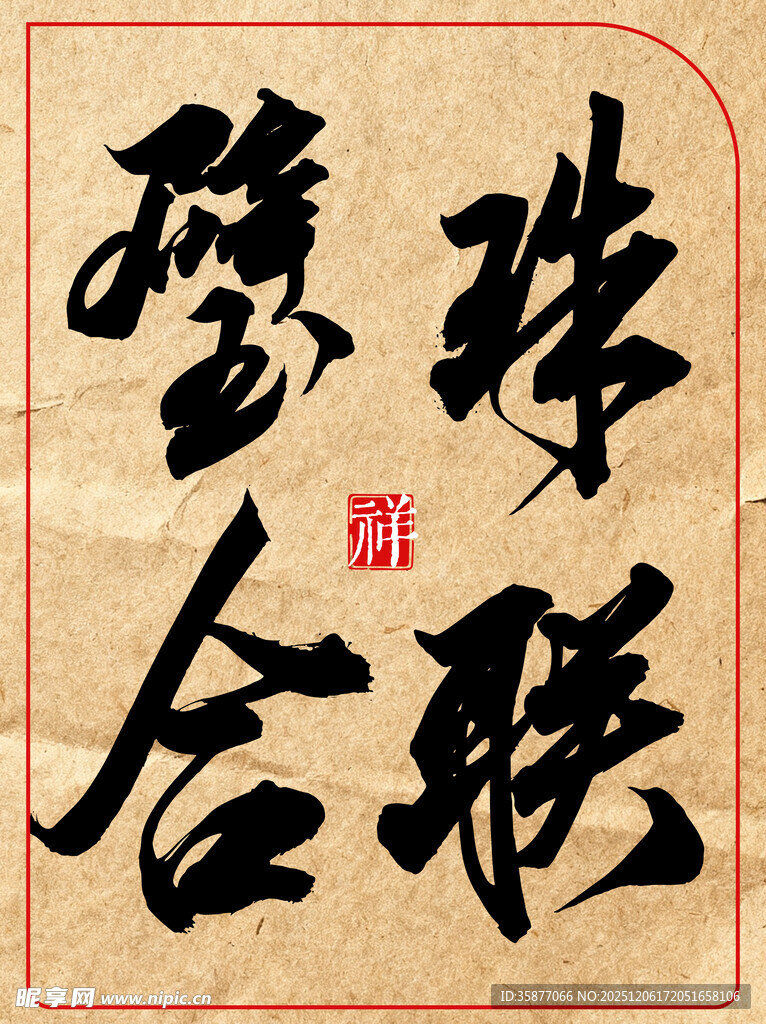 珠联
璧合
祥
昵享网 www.nipic.cn
ID:35877066 NO:20251206172051658106